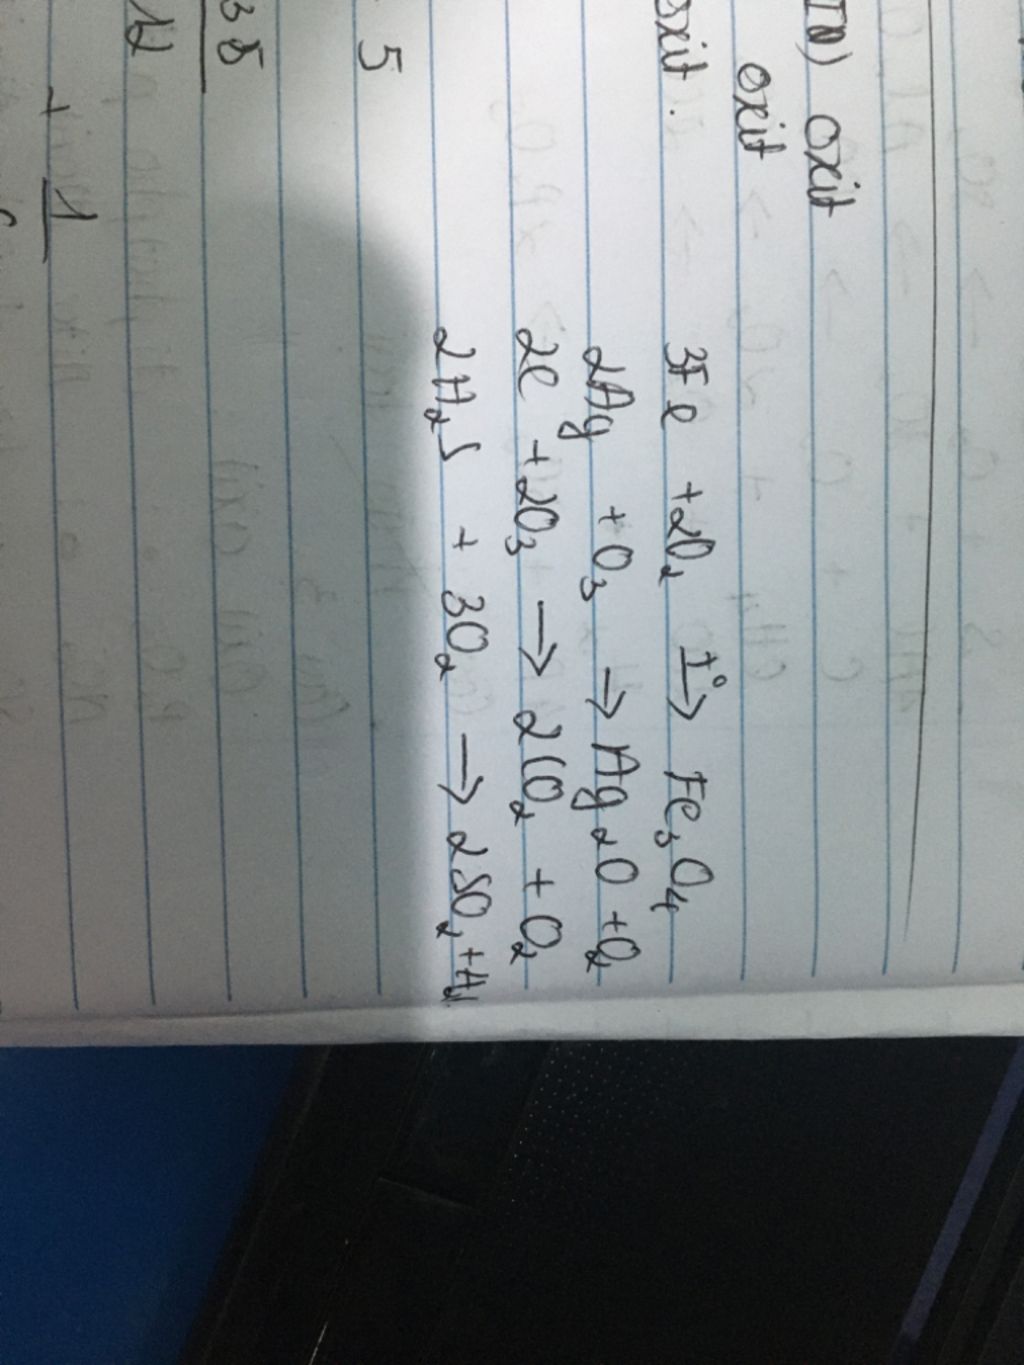 TN) oxit
oxit
oxit.
3Fe + 2O₂ t°→ Fe₃O₄
2Ag + O₃ → Ag₂O + O₂
2C + 2O₃ → 2CO₂ + O₂
2H₂S + 3O₂ → 2SO₂ + H₂
5
38
12
+ 1